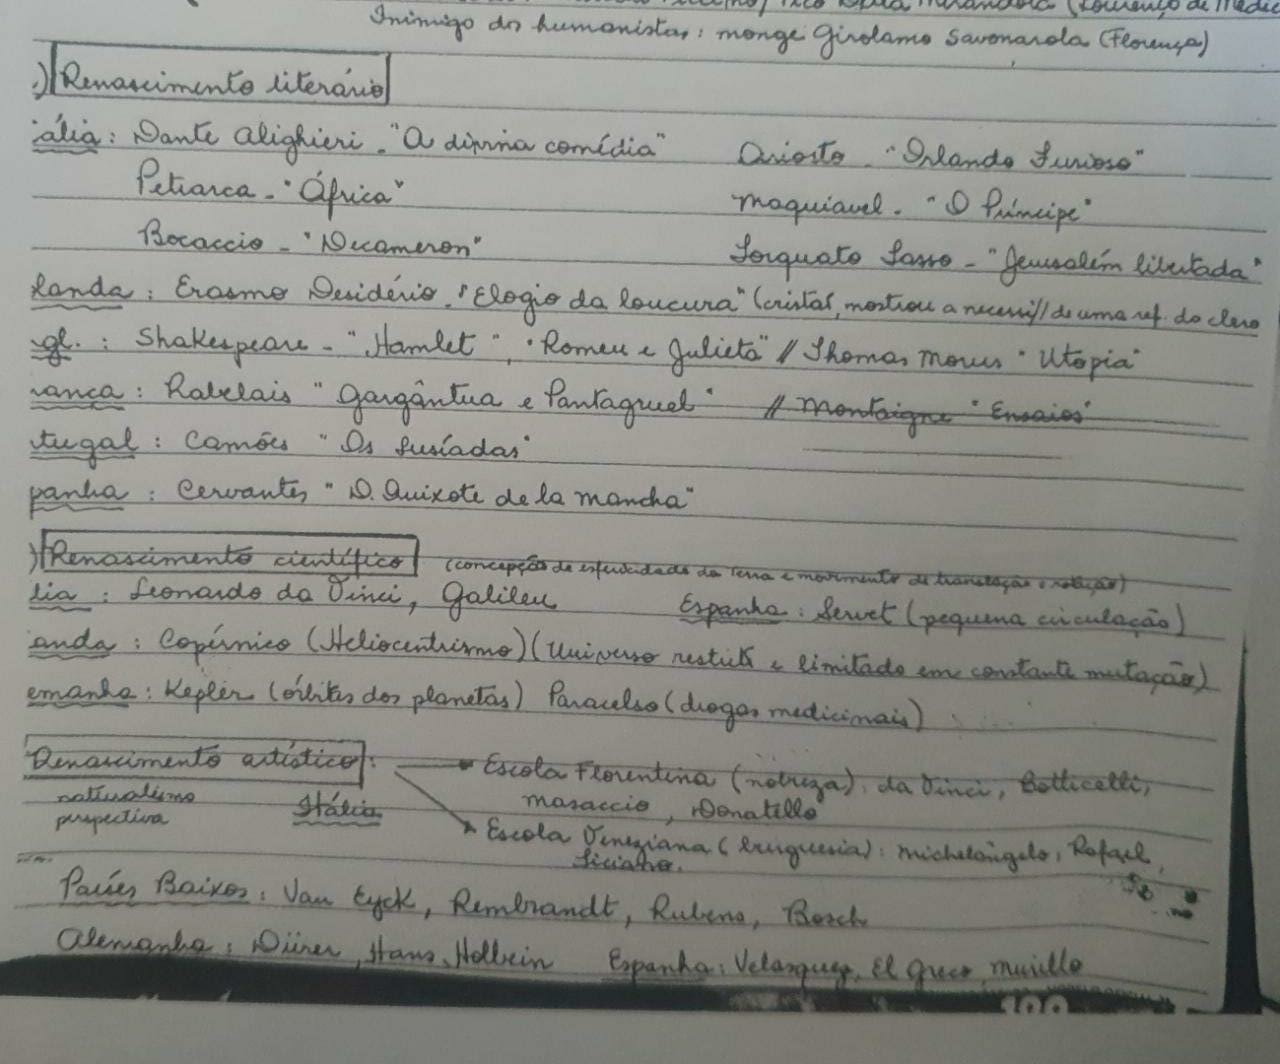 Pico della Mirandola (Lourenço de Médic
Inimigo dos humanistas: monge Girolamo Savonarola (Florença)
.) Renascimento literário
ália: Dante Alighieri - "A divina comédia" Ariosto - "Orlando Furioso"
Petrarca - "África" Maquiavel - "O Príncipe"
Bocaccio - "Decameron" Torquato Tasso - "Jerusalém libertada"
landa: Erasmo Desidério - "Elogio da loucura" (cristão, mostrou a necessi// de uma ref. do clero
gl.: Shakespeare - "Hamlet", "Romeu e Julieta" // Thomas Morus "Utopia"
rança: Rabelais "Gargântua e Pantagruel" // Montaigne "Ensaios"
tugal: Camões "Os Lusíadas"
panha: Cervantes "D. Quixote de la Mancha"
) Renascimento científico (concepção de esfericidade da Terra e movimento de translação e rotação)
lia: Leonardo da Vinci, Galileu Espanha: Servet (pequena circulação)
anda: Copérnico (Heliocentrismo) (Universo restrito e limitado em constante mutação)
emanha: Kepler (órbitas dos planetas) Paracelso (drogas medicinais)
Renascimento artístico: Escola Florentina (nobreza): da Vinci, Botticelli,
naturalismo Itália Masaccio, Donatello
perspectiva Escola Veneziana (burguesia): Michelângelo, Rafael,
Ticiano.
Países Baixos: Van Eyck, Rembrandt, Rubens, Bosch
Alemanha: Dürer, Hans Holbein Espanha: Velasquez, El Greco, Murillo